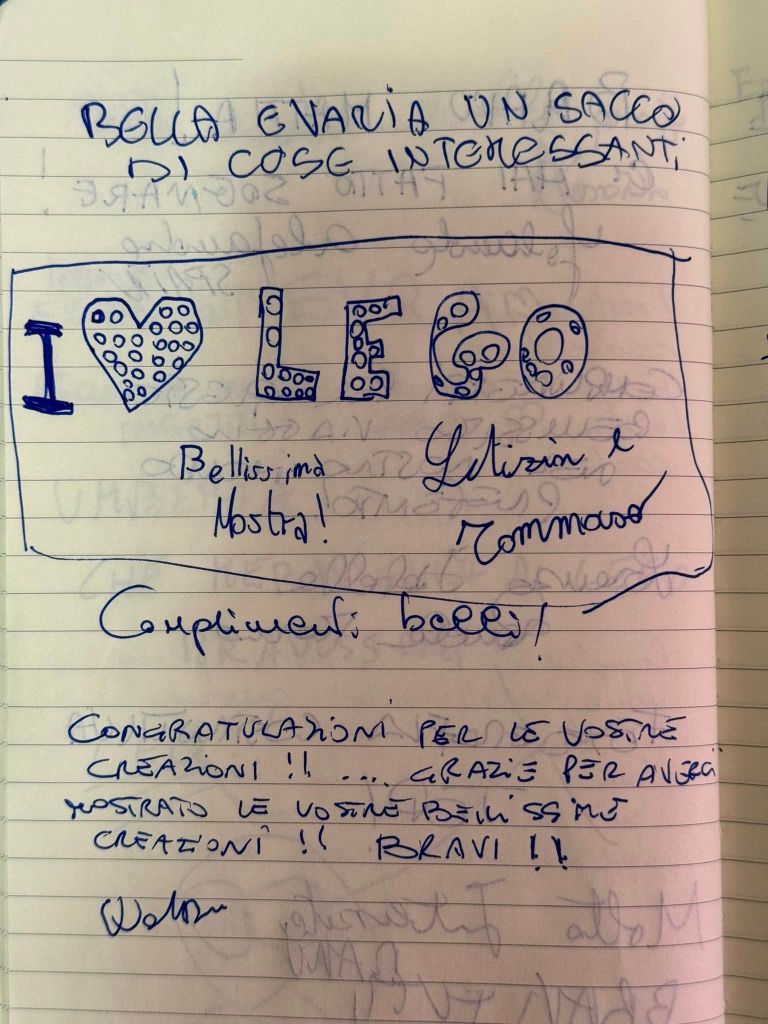 BELLA E VARIA UN SACCO
DI COSE INTERESSANTI
I LEGO
Bellissima
Mostra!
Letizia e
Tommaso
Complimenti belli!
CONGRATULAZIONI PER LE VOSTRE
CREAZIONI !! .... GRAZIE PER AVERCI
MOSTRATO LE VOSTRE BELLISSIME
CREAZIONI !! BRAVI !!